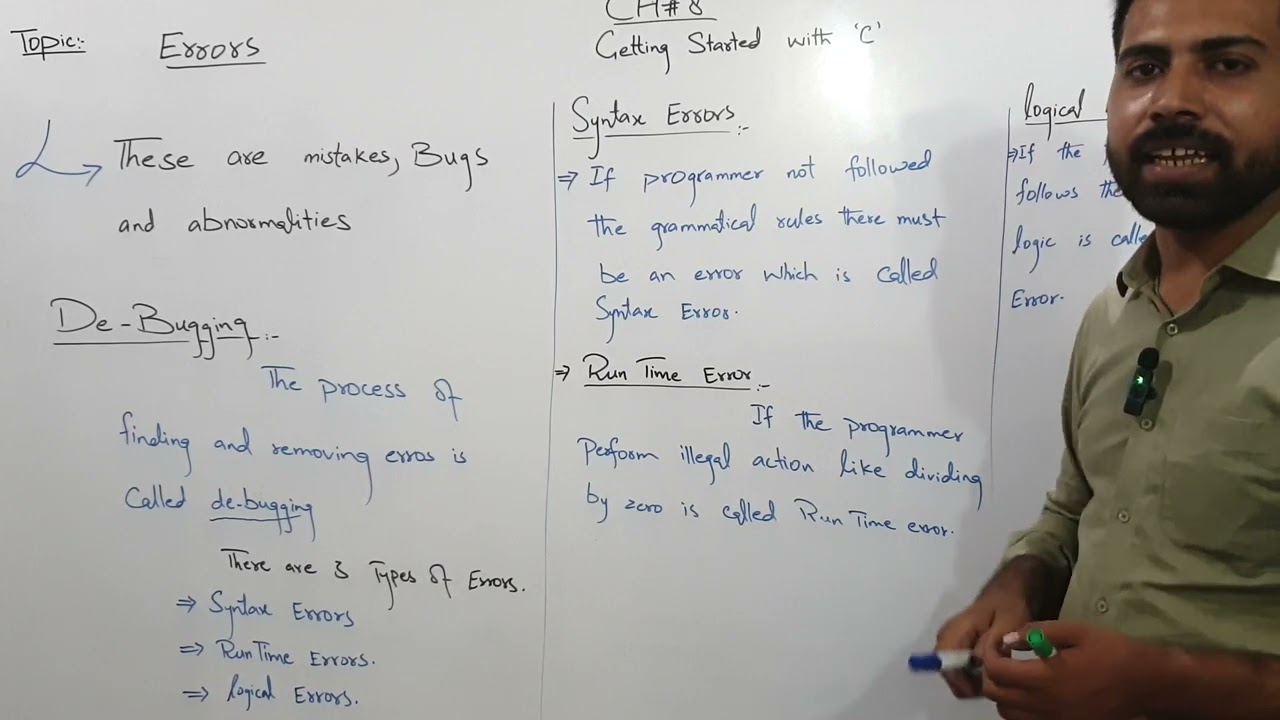 CH#8
Getting Started with 'C'
Topic:-
Errors
These are mistakes, Bugs
and abnormalities
De-Bugging:-
The process of
finding and removing erros is
Called de-bugging
There are 3 Types of Errors.
⇒ Syntax Errors
⇒ RunTime Errors.
⇒ logical Errors.
Syntax Errors:-
⇒ If programmer not followed
the grammatical rules there must
be an error which is called
Syntax Error.
⇒ Run Time Error:-
If the programmer
Perform illegal action like dividing
by zero is called Run Time error.
logical
⇒ If the
follows the
logic is
Error.